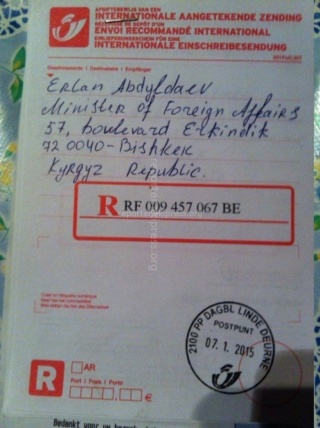 AFGIFTEBEWIJS VAN EEN
INTERNATIONALE AANGETEKENDE ZENDING
ENVOI RECOMMANDÉ INTERNATIONAL
EINLIEFERUNGSSCHEIN FÜR EINE
INTERNATIONALE EINSCHREIBESENDUNG
Geadresseerde | Destinataire | Empfänger
Erlan Abdyldaev
Minister of Foreign Affairs
57, boulevard Erkindik
72 0040-Bishkek
Kyrgyz Republic.
R RF 009 457 067 BE
2100 PP DAGBL LINDE DEURNE
POSTPUNT
07. 1. 2015
R
AR
Port | Prijs | Porto
€
Bedankt voor uw